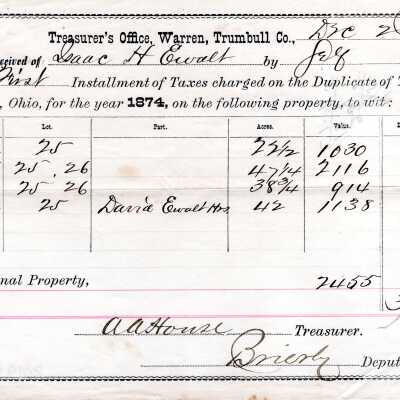 Treasurer's Office, Warren, Trumbull Co., Dec 2
eceived of Isaac H Ewalt by Self
First Installment of Taxes charged on the Duplicate of T
, Ohio, for the year 1874, on the following property, to wit:
Lot. Part. Acres. Value.
25 22 1/2 1030
25 . 26 47 1/4 2116
25 . 26 38 3/4 914
25 David Ewalt Hrs. 42 1138
nal Property, 2455
A A House Treasurer.
Brierly Deput